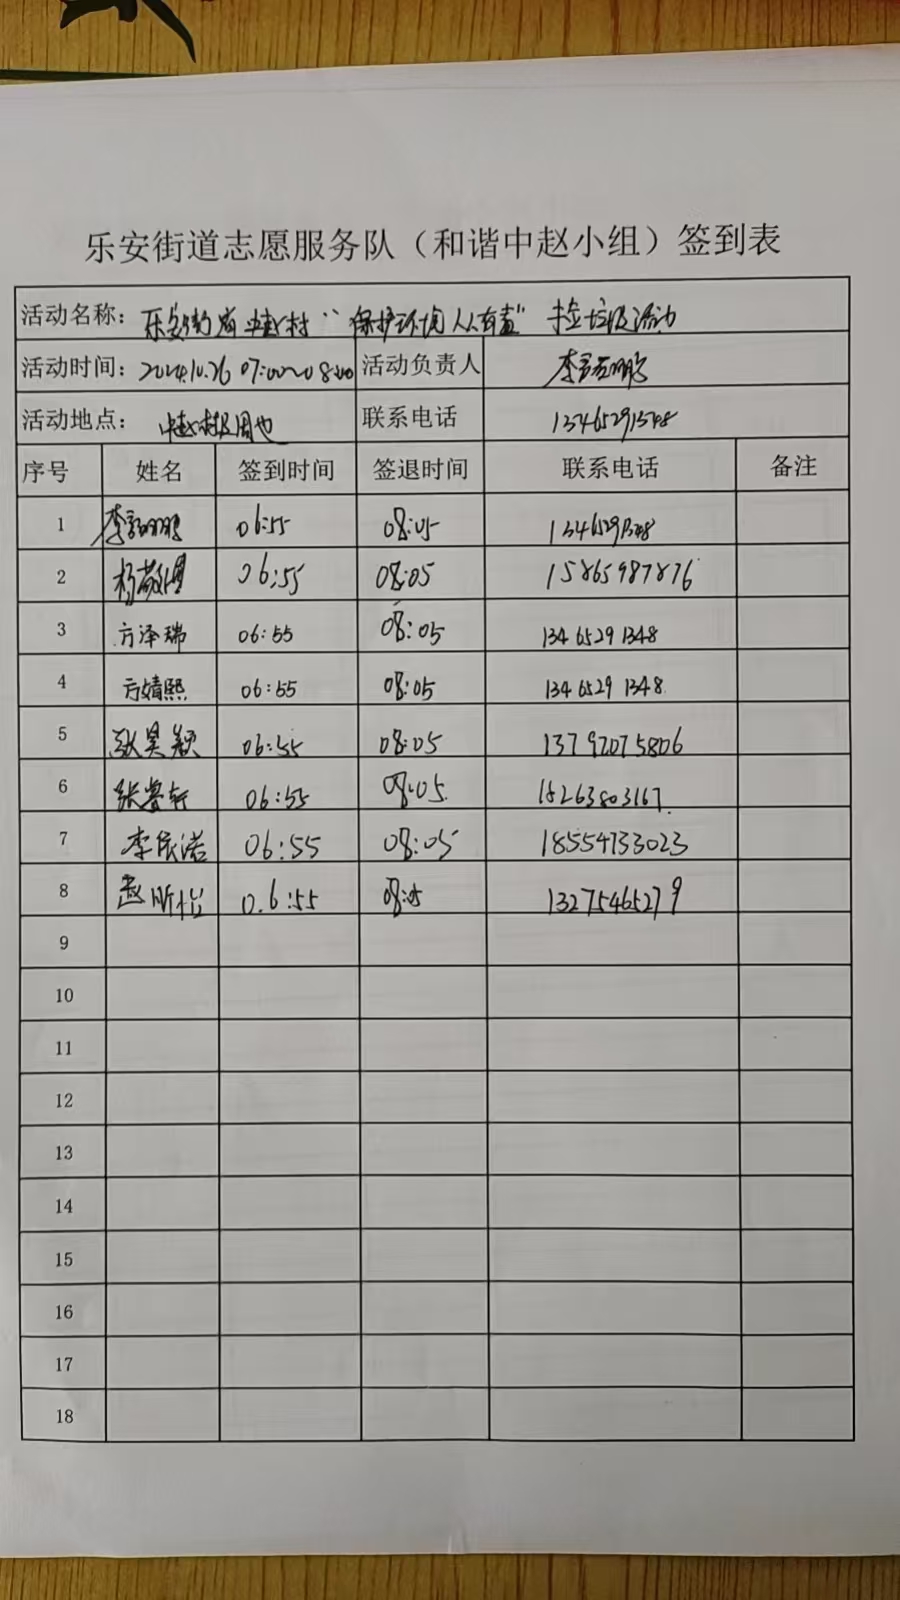 乐安街道志愿服务队（和谐中赵小组）签到表
活动名称：乐安街道中赵村“保护环境人人有责”捡垃圾活动
活动时间：2024.10.26 07:00~08:00 活动负责人
活动地点：中赵村及周边 联系电话 13465291348
序号 姓名 签到时间 签退时间 联系电话 备注
1 06:55 08:05 13465291348
2 06:55 08:05 15865987876
3 方泽瑞 06:55 08:05 1346529 1348
4 方婧熙 06:55 08:05 1346529 1348
5 张昊颖 06:55 08:05 13792075806
6 06:55 08:05 15263803167
7 李依诺 06:55 08:05 18554733023
8 赵昕怡 06:55 08:05 13275465279
9
10
11
12
13
14
15
16
17
18